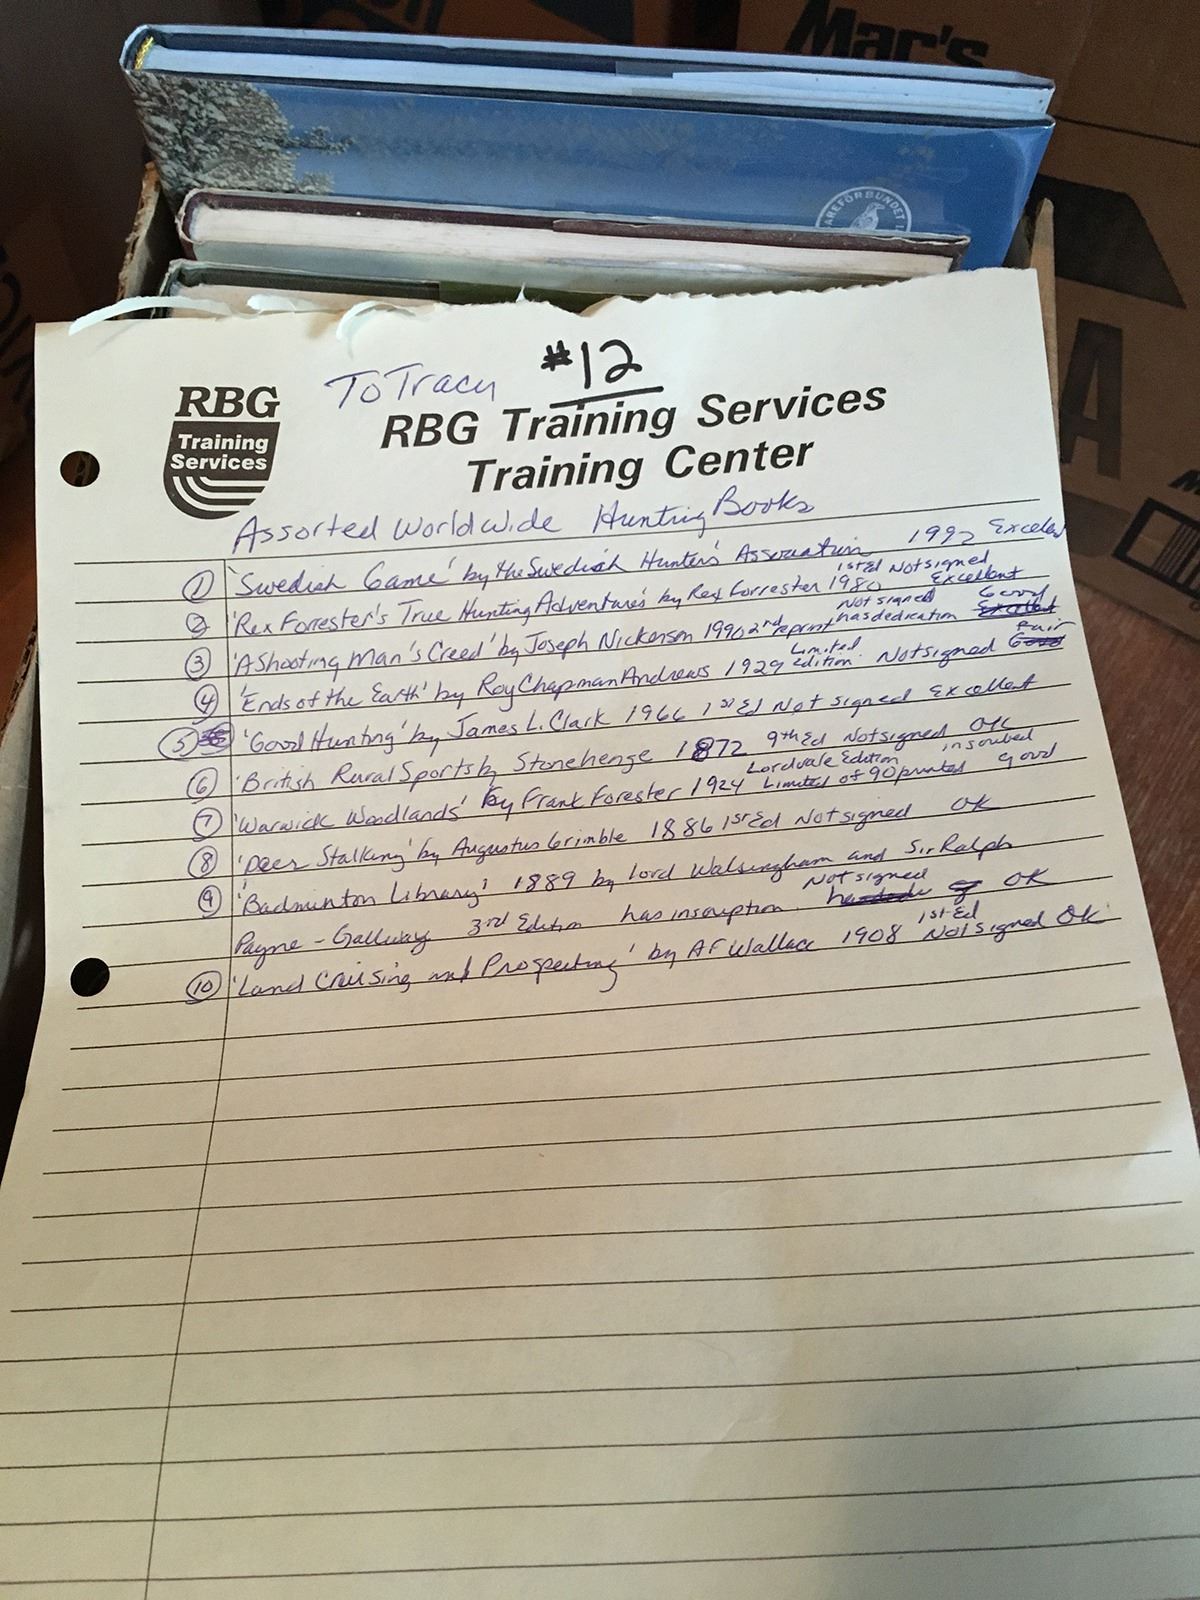 Mar's
AREFÖRBUNDET
A
#12
To Tracy
RBG
Training
Services
RBG Training Services
Training Center
Assorted Worldwide Hunting Books
① 'Swedish Game' by the Swedish Hunters Association 1992 Excellent
② 'Rex Forrester's True Hunting Adventures' by Rex Forrester 1980 1st Ed Not signed Excellent
③ 'A Shooting Man's Creed' by Joseph Nickerson 1990 2nd reprint Not signed has dedication Good Excellent
④ 'Ends of the Earth' by Roy Chapman Andrews 1929 Limited Edition Not signed Fair Good
⑤ 'Good Hunting' by James L. Clark 1966 1st Ed Not signed Excellent
⑥ 'British Rural Sports by Stonehenge 1872 9th Ed Not signed OK
⑦ 'Warwick Woodlands' by Frank Forester 1924 Lordvale Edition Limited of 90 printed inscribed good
⑧ 'Deer Stalking' by Augustus Grimble 1886 1st Ed Not signed OK
⑨ 'Badminton Library' 1889 by Lord Walsingham and Sir Ralph
Payne-Gallwey 3rd Edition has inscription Not signed OK
⑩ 'Land Cruising and Prospecting' by AF Wallace 1908 1st Ed Not signed OK